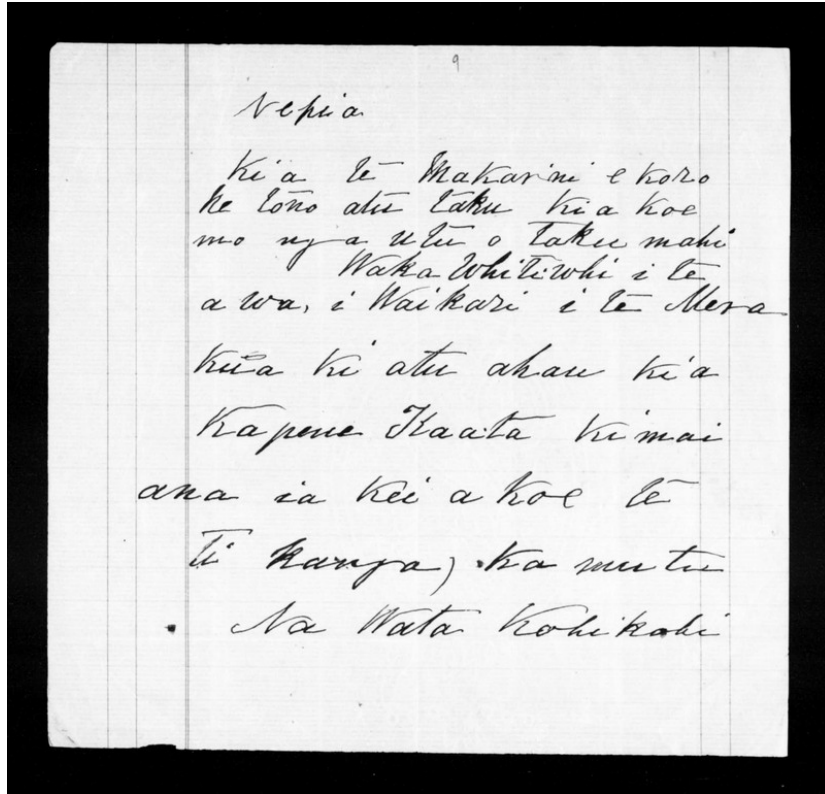 9
Nepia
Ki a te Makarini e koro
he tono atu taku kia koe
mo nga utu o taku mahi
Waka Whitiwhi i te
awa, i Waikari i te Mera
Kua ki atu ahau ki a
Kapene Kaata Ki mai
ana ia Kei a Koe te
ti kanga) Ka mutu
Na Wata Kohikohi